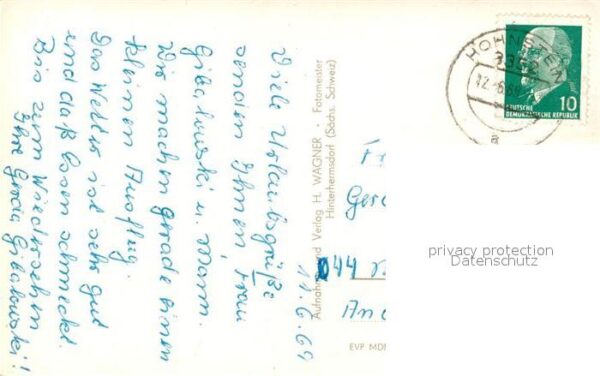 Viele Urlaubsgrüße
senden Ihnen, Frau
Gibalowski u. Mann.
Wir machen gerade einen
kleinen Ausflug.
Das Wetter ist sehr gut
und daß Essen schmeckt.
Bis zum Wiedersehn
Ihre Gerda Gibalowski!
11.6.69
Aufnahme und Verlag H. WAGNER - Fotomeister
Hinterhermsdorf (Sächs. Schweiz)
HOHNSTEIN
DEUTSCHE
DEMOKRATISCHE REPUBLIK
10
a
044
privacy protection
Datenschutz